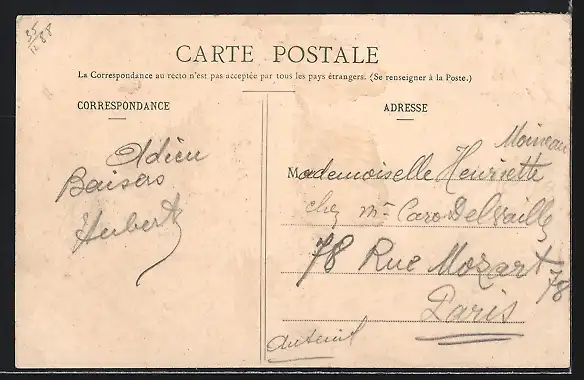 35
12 88
CARTE POSTALE
La Correspondance au recto n'est pas acceptée par tous les pays étrangers. (Se renseigner à la Poste.)
CORRESPONDANCE
ADRESSE
Adieu
Baisers
Hubert
Moineau
Mademoiselle Henriette
chez Mme Caro Delvaille
78 Rue Mozart 78
Paris
Auteuil